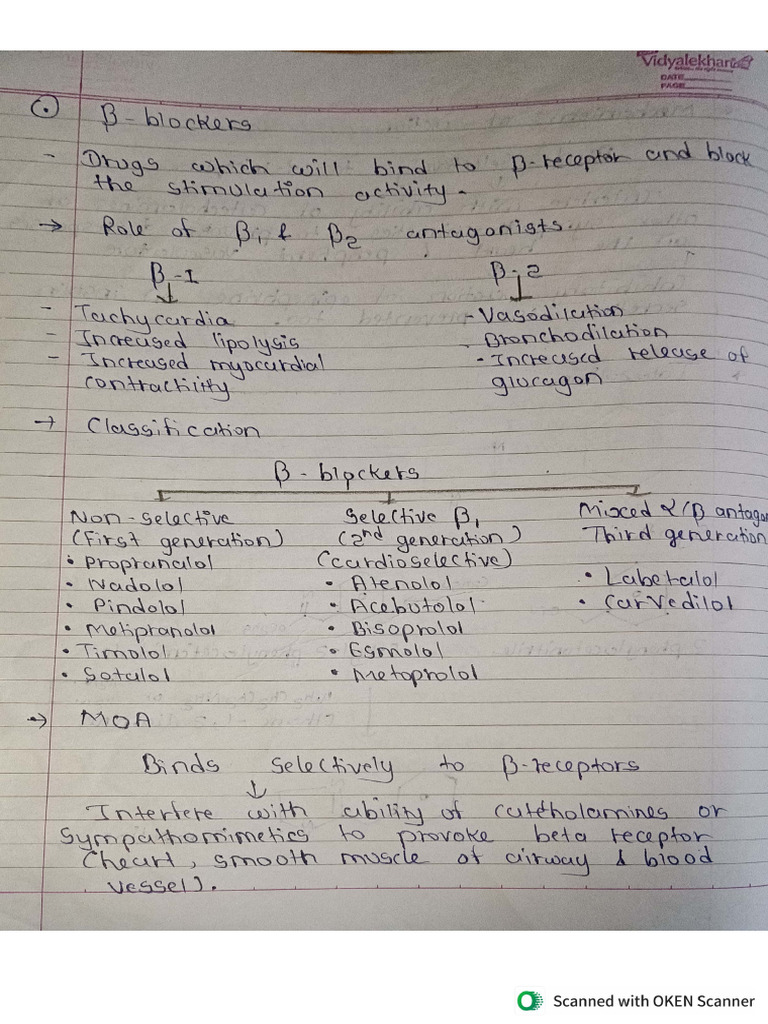 Vidyalekhan
DATE
PAGE
β-blockers
- Drugs which will bind to β-receptor and block
the stimulation activity.
→ Role of β1 & β2 antagonists.
β-1
β-2
- Tachycardia
- Increased lipolysis
- Increased myocardial
contractility
- Vasodilation
- Bronchodilation
- Increased release of
glucagon
→ Classification
β-blockers
Non-selective
(First generation)
• Propranalol
• Nadolol
• Pindolol
• Metipranalol
• Timolol
• Sotalol
Selective β1
(2nd generation)
(cardioselective)
• Atenolol
• Acebutolol
• Bisoprolol
• Esmolol
• Metoprolol
Mixed α/β antagon
Third generation
• Labetalol
• Carvedilol
→ MOA
Binds selectively to β-receptors
↓
Interfere with ability of catetholamines or
Sympathomimetics to provoke beta receptor
(heart, smooth muscle of airway & blood
vessel).
Scanned with OKEN Scanner